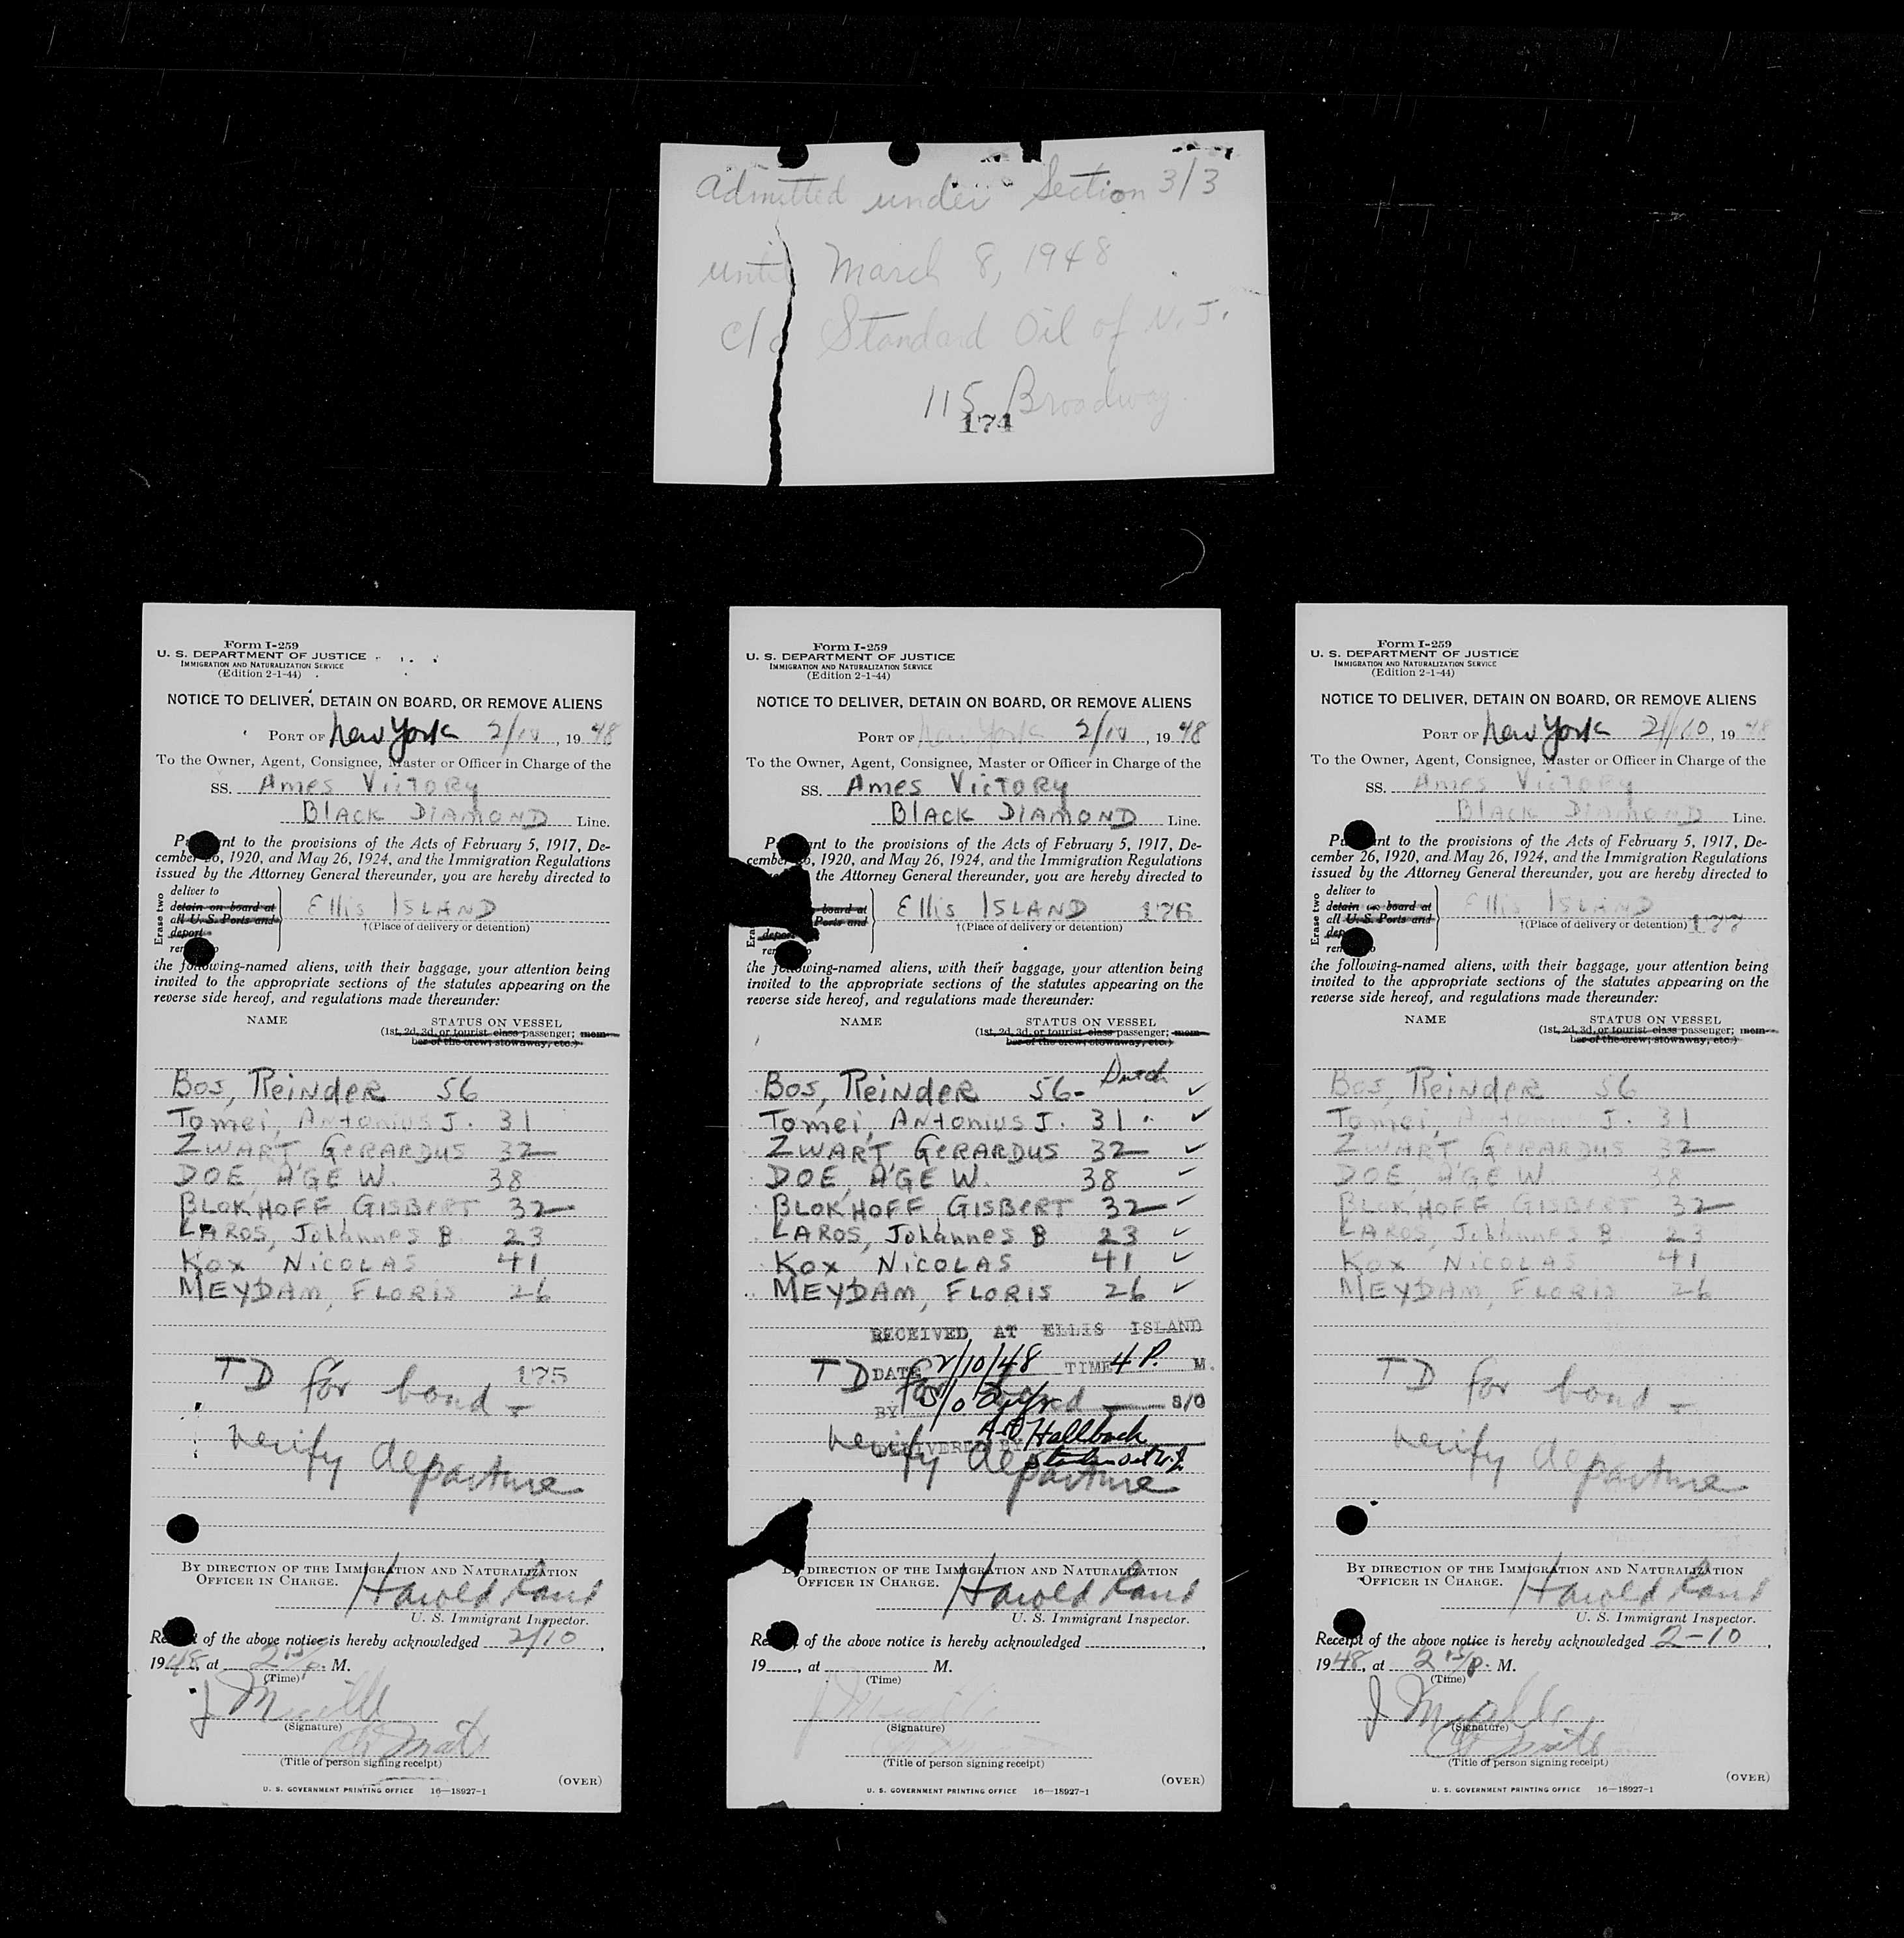 Admitted under Section 3/3
until March 8, 1948
c/o Standard Oil of N.J.
115 Broadway
174
Form I-259
U. S. DEPARTMENT OF JUSTICE
IMMIGRATION AND NATURALIZATION SERVICE
(Edition 2-1-44)
NOTICE TO DELIVER, DETAIN ON BOARD, OR REMOVE ALIENS
PORT OF New York 2/10, 1948
To the Owner, Agent, Consignee, Master or Officer in Charge of the
SS. Ames Victory
Black Diamond Line.
Pursuant to the provisions of the Acts of February 5, 1917, De-
cember 26, 1920, and May 26, 1924, and the Immigration Regulations
issued by the Attorney General thereunder, you are hereby directed to
Erase two
deliver to
detain on board at
all U. S. Ports and
deport
remove to
Ellis Island
†(Place of delivery or detention)
the following-named aliens, with their baggage, your attention being
invited to the appropriate sections of the statutes appearing on the
reverse side hereof, and regulations made thereunder:
NAME STATUS ON VESSEL
(1st, 2d, 3d, or tourist class passenger; mem-
ber of the crew; stowaway, etc.)
Bos, Reinder 56
Tomei, Antonius J. 31
Zwart Gerardus 32
Doe, Age W. 38
Blokhoff Gisbert 32
Laros, Johannes B 23
Kox Nicolas 41
Meydam, Floris 26
TD for bond - 175
Verify departure
BY DIRECTION OF THE IMMIGRATION AND NATURALIZATION
OFFICER IN CHARGE.
Harold
U. S. Immigrant Inspector.
Receipt of the above notice is hereby acknowledged 2/10,
1948, at 2 15/P. M.
(Time)
J
(Signature)
Ch Mate
(Title of person signing receipt)
(OVER)
U. S. GOVERNMENT PRINTING OFFICE 16—18927-1
Form I-259
U. S. DEPARTMENT OF JUSTICE
IMMIGRATION AND NATURALIZATION SERVICE
(Edition 2-1-44)
NOTICE TO DELIVER, DETAIN ON BOARD, OR REMOVE ALIENS
PORT OF New York 2/10, 1948
To the Owner, Agent, Consignee, Master or Officer in Charge of the
SS. Ames Victory
Black Diamond Line.
Pursuant to the provisions of the Acts of February 5, 1917, De-
cember 26, 1920, and May 26, 1924, and the Immigration Regulations
the Attorney General thereunder, you are hereby directed to
board at
Ports and
deport
Ellis Island 176
†(Place of delivery or detention)
the following-named aliens, with their baggage, your attention being
invited to the appropriate sections of the statutes appearing on the
reverse side hereof, and regulations made thereunder:
NAME STATUS ON VESSEL
(1st, 2d, 3d, or tourist class passenger; mem-
ber of the crew; stowaway, etc.)
Bos, Reinder 56- Dutch ✓
Tomei, Antonius J. 31 ✓
Zwart Gerardus 32 ✓
Doe, Age W. 38 ✓
Blokhoff Gisbert 32 ✓
Laros, Johannes B 23 ✓
Kox Nicolas 41 ✓
Meydam, Floris 26 ✓
RECEIVED AT ELLIS ISLAND
DATE 2/10/48 TIME 4 P. M.
TD for bond -
BY S/O
DELIVERED BY Hallback
Verify departure
BY DIRECTION OF THE IMMIGRATION AND NATURALIZATION
OFFICER IN CHARGE.
Harold
U. S. Immigrant Inspector.
Receipt of the above notice is hereby acknowledged
19, at M.
(Time)
J
(Signature)
(Title of person signing receipt)
(OVER)
U. S. GOVERNMENT PRINTING OFFICE 16—18927-1
Form I-259
U. S. DEPARTMENT OF JUSTICE
IMMIGRATION AND NATURALIZATION SERVICE
(Edition 2-1-44)
NOTICE TO DELIVER, DETAIN ON BOARD, OR REMOVE ALIENS
PORT OF New York 2/10, 1948
To the Owner, Agent, Consignee, Master or Officer in Charge of the
SS. Ames Victory
Black Diamond Line.
Pursuant to the provisions of the Acts of February 5, 1917, De-
cember 26, 1920, and May 26, 1924, and the Immigration Regulations
issued by the Attorney General thereunder, you are hereby directed to
Erase two
deliver to
detain on board at
all U. S. Ports and
deport
remove to
Ellis Island
†(Place of delivery or detention) 177
the following-named aliens, with their baggage, your attention being
invited to the appropriate sections of the statutes appearing on the
reverse side hereof, and regulations made thereunder:
NAME STATUS ON VESSEL
(1st, 2d, 3d, or tourist class passenger; mem-
ber of the crew; stowaway, etc.)
Bos, Reinder 56
Tomei, Antonius J. 31
Zwart Gerardus 32
Doe Age W. 38
Blokhoff Gisbert 32
Laros, Johannes B. 23
Kox Nicolas 41
Meydam, Floris 26
TD for bond -
Verify departure
BY DIRECTION OF THE IMMIGRATION AND NATURALIZATION
OFFICER IN CHARGE.
Harold
U. S. Immigrant Inspector.
Receipt of the above notice is hereby acknowledged 2-10,
1948, at 2 15/P. M.
(Time)
J
(Signature)
Ch Mate
(Title of person signing receipt)
(OVER)
U. S. GOVERNMENT PRINTING OFFICE 16—18927-1